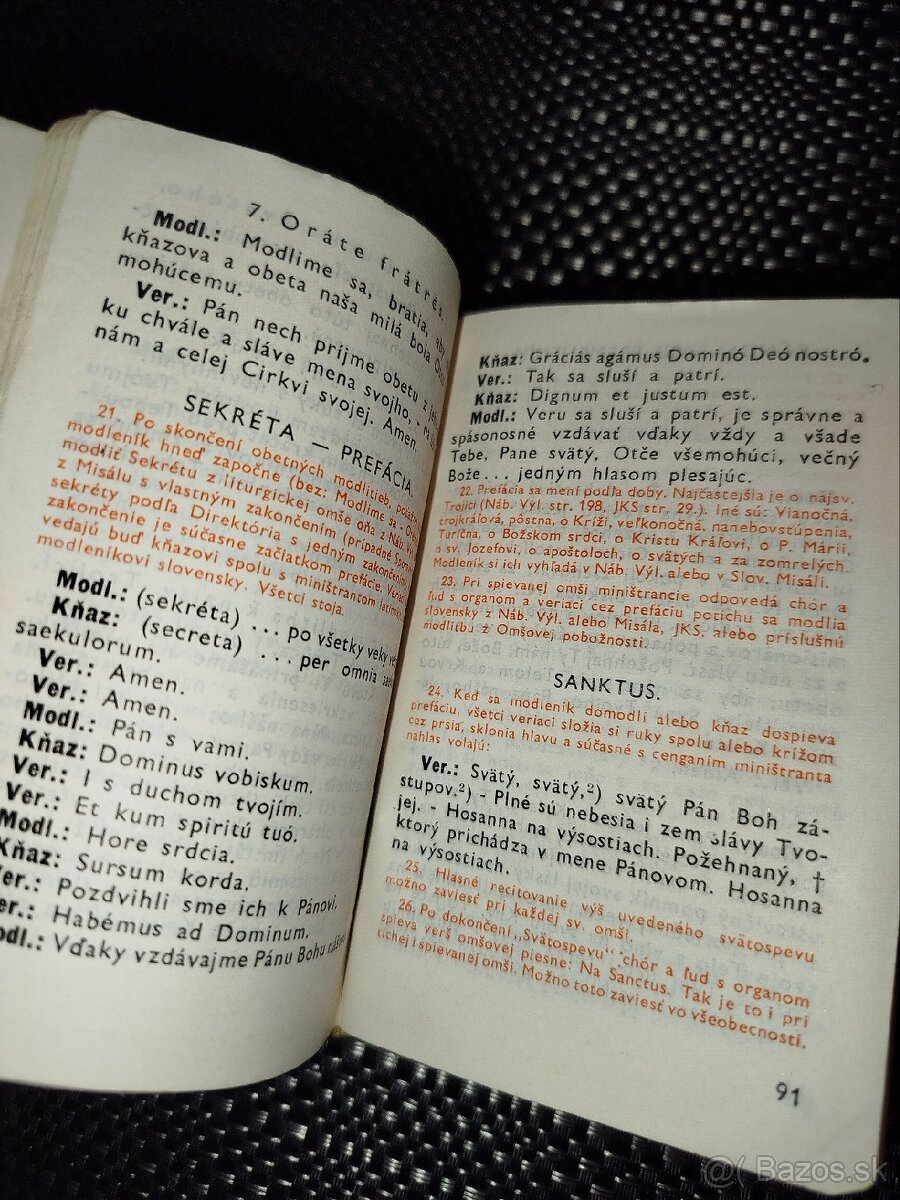 7. Oráte frátrés.
Modl.: Modlime sa, bratia, aby
kňazova a obeta naša milá bola
mohúcemu.
Ver.: Pán nech prijme obetu z
ku chvále a sláve mena svojho, - na
nám a celej Cirkvi svojej. Amen.
SEKRÉTA — PREFÁCIA.
21. Po skončení obetných modlitieb,
modleník hneď započne (bez: Modlime sa
modliť Sekrétu z liturgickej omše dňa z Náb.
z Misálu s vlastným zakončením (prípadné
sekréty podľa Direktória s jedným zakončením
zakončenie je súčasne začiatkom prefácie.
vedajú buď kňazovi spolu s miništrantom
modleníkovi slovensky. Všetci stoja.
Modl.: (sekréta) ... po všetky veky
Kňaz: (secreta) ... per omnia
saekulorum.
Ver.: Amen.
Ver.: Amen.
Modl.: Pán s vami.
Kňaz: Dominus vobiskum.
Ver.: I s duchom tvojím.
Ver.: Et kum spiritú tuó.
Modl.: Hore srdcia.
Kňaz: Sursum korda.
Ver.: Pozdvihli sme ich k Pánovi.
Ver.: Habémus ad Dominum.
Modl.: Vďaky vzdávajme Pánu Bohu
Kňaz: Gráciás agámus Dominó Deó nostró.
Ver.: Tak sa sluší a patrí.
Kňaz: Dignum et justum est.
Modl.: Veru sa sluší a patrí, je správne a
spásonosné vzdávať vďaky vždy a všade
Tebe, Pane svätý, Otče všemohúci, večný
Bože... jedným hlasom plesajúc.
22. Prefácia sa mení podľa doby. Najčastejšia je o najsv.
Trojici (Náb. Výl. str. 198, JKS str. 29.). Iné sú: Vianočná,
trojkráľová, pôstna, o Kríži, veľkonočná, nanebovstúpenia,
Turíčna, o Božskom srdci, o Kristu Kráľovi, o P. Márii,
o sv. Jozefovi, o apoštoloch, o svätých a za zomrelých.
Modleník si ich vyhľadá v Náb. Výl. alebo v Slov. Misáli.
23. Pri spievanej omši miništrancie odpovedá chór a
ľud s organom a veriaci cez prefáciu potichu sa modlia
slovensky z Náb. Výl. alebo Misála, JKS. alebo príslušnú
modlitbu z Omšovej pobožnosti.
SANKTUS.
24. Keď sa modleník domodlí alebo kňaz dospieva
prefáciu, všetci veriaci složia si ruky spolu alebo krížom
cez prsia, sklonia hlavu a súčasne s cenganím miništranta
nahlas volajú:
Ver.: Svätý, svätý,²) svätý Pán Boh zá-
stupov.²) - Plné sú nebesia i zem slávy Tvo-
jej. - Hosanna na výsostiach. Požehnaný, †
ktorý prichádza v mene Pánovom. Hosanna
na výsostiach.
25. Hlasné recitovanie výš uvedeného svätospevu
možno zaviesť pri každej sv. omši.
26. Po dokončení „Svätospevu" chór a ľud s organom
spieva verš omšovej piesne: Na Sanctus. Tak je to i pri
tichej i spievanej omši. Možno toto zaviesť vo všeobecnosti.
91
@ Bazos.sk